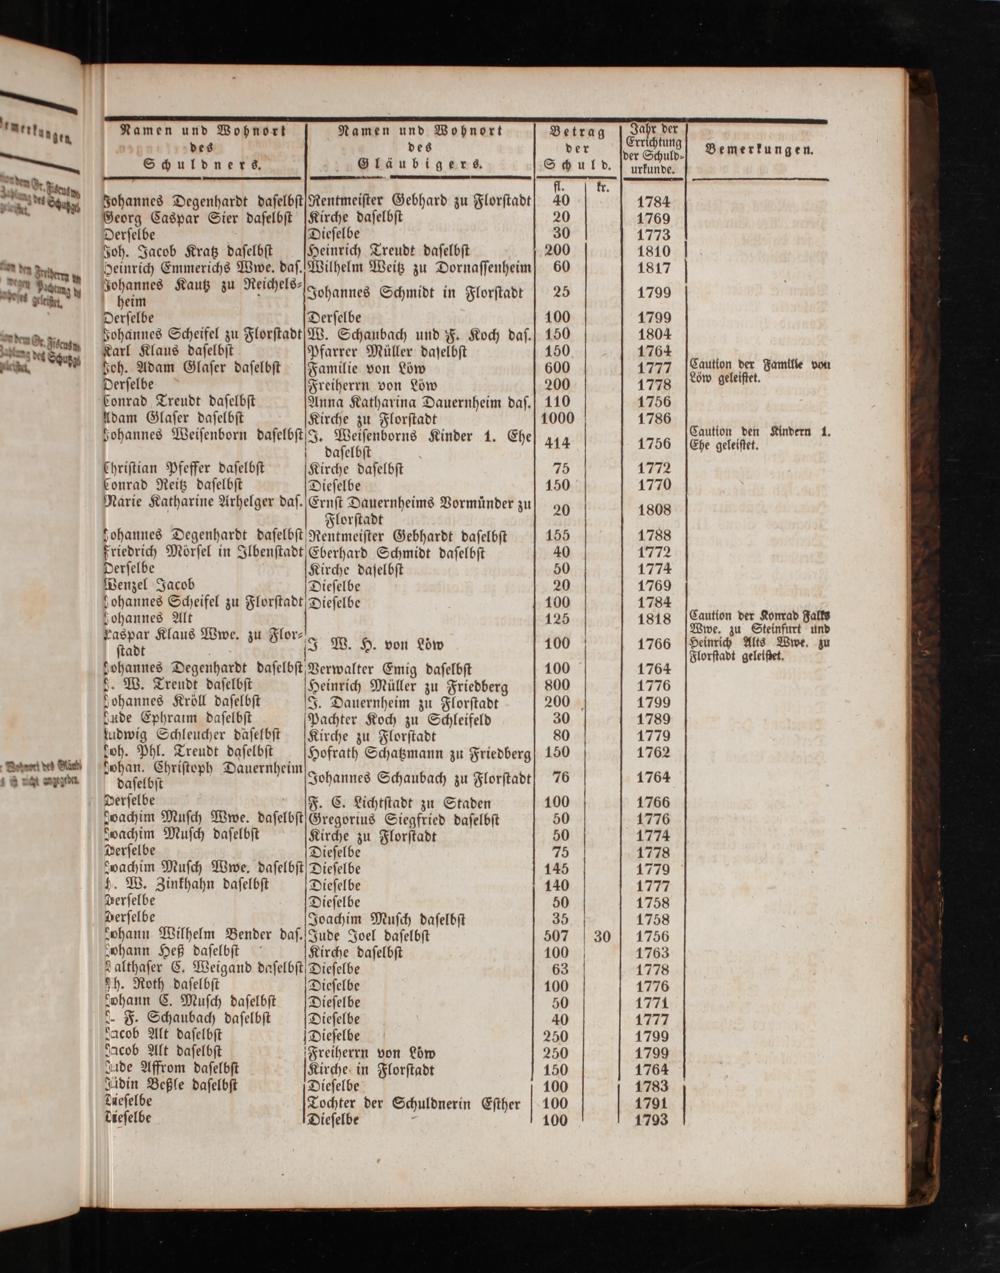 Bemerkungen.
Namen und Wohnort des Schuldners. | Namen und Wohnort des Gläubigers. | Betrag der Schuld. | Jahr der Errichtung der Schuldurkunde. | Bemerkungen.
fl. | kr.
Johannes Degenhardt daselbst | Rentmeister Gebhard zu Florstadt | 40 | 1784
Georg Caspar Sier daselbst | Kirche daselbst | 20 | 1769
Derselbe | Dieselbe | 30 | 1773
Joh. Jacob Kratz daselbst | Heinrich Treudt daselbst | 200 | 1810
Heinrich Emmerichs Wwe. das. | Wilhelm Weitz zu Dornassenheim | 60 | 1817
Johannes Kautz zu Reichels-
heim | Johannes Schmidt in Florstadt | 25 | 1799
Derselbe | Derselbe | 100 | 1799
Johannes Scheifel zu Florstadt | W. Schaubach und F. Koch das. | 150 | 1804
Karl Klaus daselbst | Pfarrer Müller daselbst | 150 | 1764
Joh. Adam Glaser daselbst | Familie von Löw | 600 | 1777 | Caution der Familie von
Löw geleistet.
Derselbe | Freiherrn von Löw | 200 | 1778
Conrad Treudt daselbst | Anna Katharina Dauernheim das. | 110 | 1756
Adam Glaser daselbst | Kirche zu Florstadt | 1000 | 1786
Johannes Weisenborn daselbst | J. Weisenborns Kinder 1. Ehe
daselbst | 414 | 1756 | Caution den Kindern 1.
Ehe geleistet.
Christian Pfeffer daselbst | Kirche daselbst | 75 | 1772
Conrad Reitz daselbst | Dieselbe | 150 | 1770
Marie Katharine Arhelger das. | Ernst Dauernheims Vormünder zu
Florstadt | 20 | 1808
Johannes Degenhardt daselbst | Rentmeister Gebhardt daselbst | 155 | 1788
Friedrich Mörsel in Ilbenstadt | Eberhard Schmidt daselbst | 40 | 1772
Derselbe | Kirche daselbst | 50 | 1774
Wenzel Jacob | Dieselbe | 20 | 1769
Johannes Scheifel zu Florstadt | Dieselbe | 100 | 1784
Johannes Alt | 125 | 1818 | Caution der Konrad Falks
Wwe. zu Steinfurt und
Heinrich Alts Wwe. zu
Florstadt geleistet.
Caspar Klaus Wwe. zu Flor-
stadt | J W. H. von Löw | 100 | 1766
Johannes Degenhardt daselbst | Verwalter Emig daselbst | 100 | 1764
W. Treudt daselbst | Heinrich Müller zu Friedberg | 800 | 1776
Johannes Kröll daselbst | J. Dauernheim zu Florstadt | 200 | 1799
Jude Ephraim daselbst | Pachter Koch zu Schleifeld | 30 | 1789
Ludwig Schleucher daselbst | Kirche zu Florstadt | 80 | 1779
Joh. Phl. Treudt daselbst | Hofrath Schatzmann zu Friedberg | 150 | 1762
Johan. Christoph Dauernheim
daselbst | Johannes Schaubach zu Florstadt | 76 | 1764
Derselbe | F. C. Lichtstadt zu Staden | 100 | 1766
Joachim Musch Wwe. daselbst | Gregorius Siegfried daselbst | 50 | 1776
Joachim Musch daselbst | Kirche zu Florstadt | 50 | 1774
Derselbe | Dieselbe | 75 | 1778
Joachim Musch Wwe. daselbst | Dieselbe | 145 | 1779
W. Zinkhahn daselbst | Dieselbe | 140 | 1777
Derselbe | Dieselbe | 50 | 1758
Derselbe | Joachim Musch daselbst | 35 | 1758
Johann Wilhelm Bender das. | Jude Joel daselbst | 507 | 30 | 1756
Johann Heß daselbst | Kirche daselbst | 100 | 1763
Balthaser C. Weigand daselbst | Dieselbe | 63 | 1778
Ph. Roth daselbst | Dieselbe | 100 | 1776
Johann C. Musch daselbst | Dieselbe | 50 | 1771
F. Schaubach daselbst | Dieselbe | 40 | 1777
Jacob Alt daselbst | Dieselbe | 250 | 1799
Jacob Alt daselbst | Freiherrn von Löw | 250 | 1799
Jude Affrom daselbst | Kirche in Florstadt | 150 | 1764
Jüdin Beßle daselbst | Dieselbe | 100 | 1783
Dieselbe | Tochter der Schuldnerin Esther | 100 | 1791
Dieselbe | Dieselbe | 100 | 1793